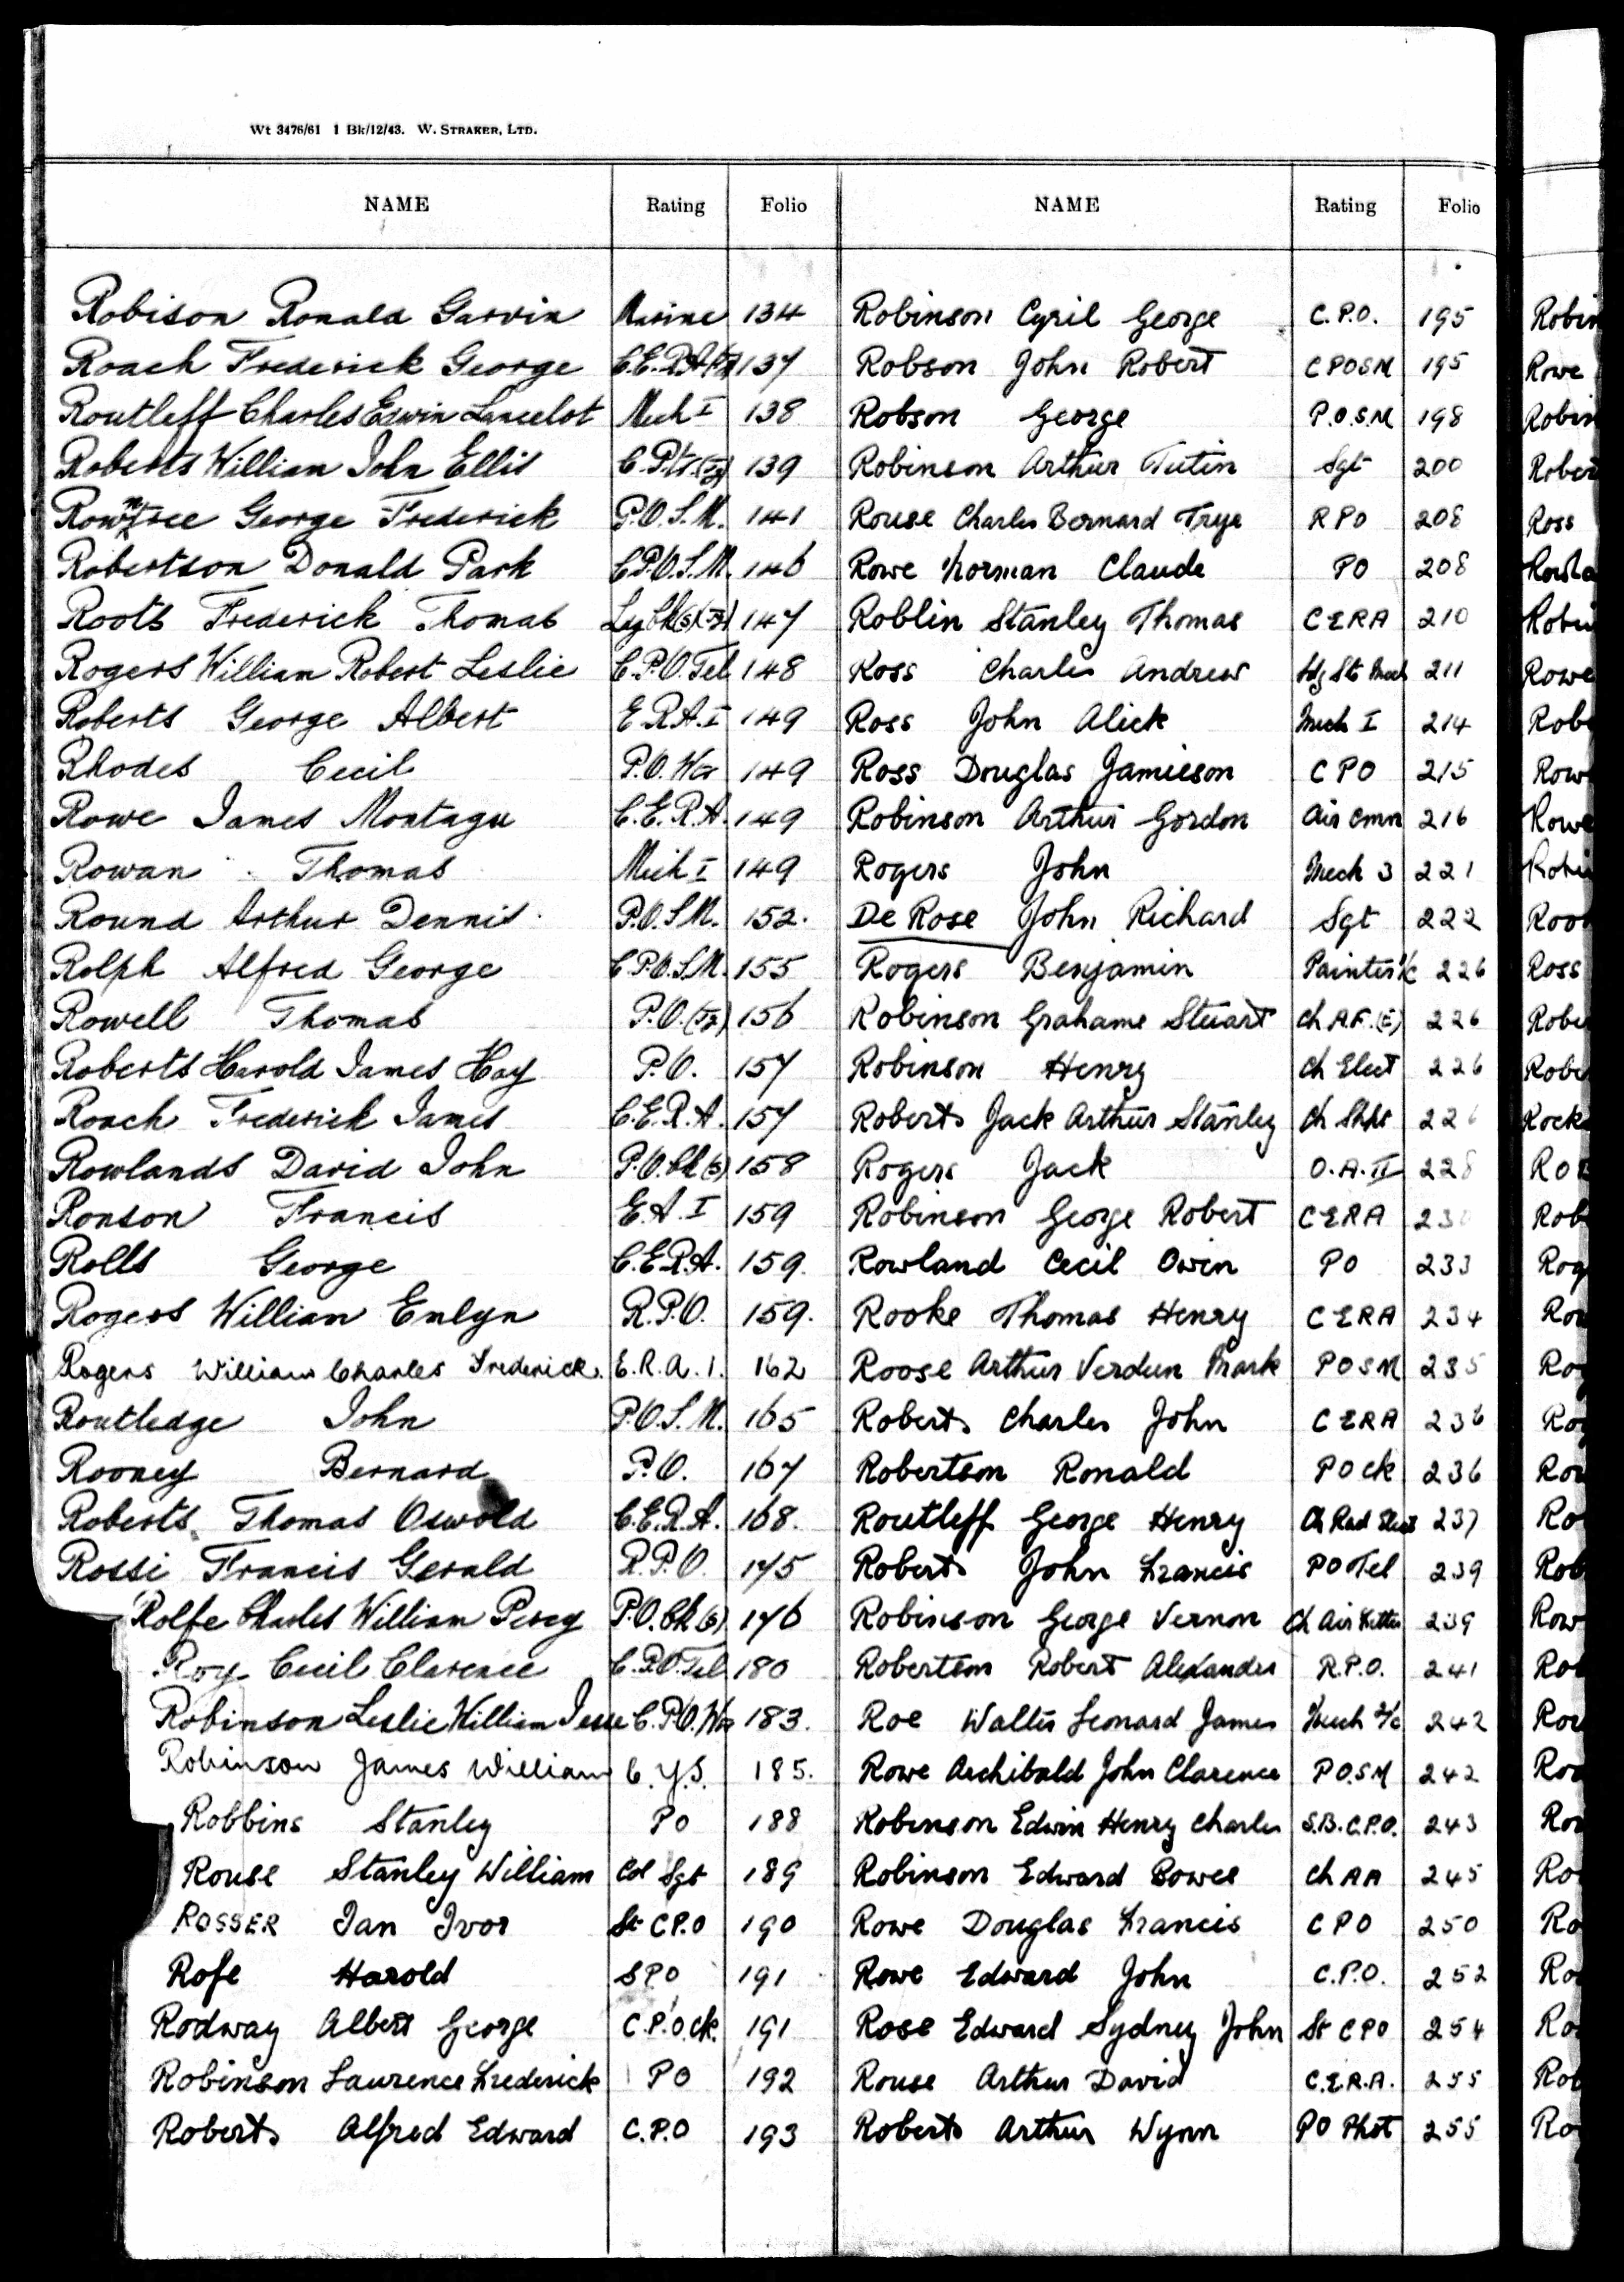 Wt 3476/61 1 Bk/12/43. W. STRAKER, LTD.
NAME Rating Folio NAME Rating Folio
Robison Ronald Garvin Marine 134
Roach Frederick George 137
Routleff Charles Edwin Lancelot Mech I 138
Roberts William John Ellis 139
Rowntree George Frederick P.O.S.M. 141
Robertson Donald Park C.P.O.S.M. 146
Roots Frederick Thomas 147
Rogers William Robert Leslie C.P.O.Tel 148
Roberts George Albert E.R.A.I 149
Rhodes Cecil P.O.Wtr 149
Rowe James Montagu C.E.R.A. 149
Rowan Thomas Mech I 149
Round Arthur Dennis P.O.S.M. 152.
Rolph Alfred George C.P.O.S.M. 155
Rowell Thomas P.O. 156
Roberts Harold James Hay P.O. 157
Roach Frederick James C.E.R.A. 157
Rowlands David John P.O.Ck(S) 158
Ronson Francis E.A.I 159
Rolls George C.E.R.A. 159.
Rogers William Emlyn R.P.O. 159.
Rogers William Charles Frederick. E.R.A.1. 162
Routledge John P.O.S.M. 165
Rooney Bernard P.O. 167
Roberts Thomas Oswold C.E.R.A. 168.
Rossi Francis Gerald R.P.O. 175
Rolfe Charles William Percy P.O.Ck(S) 176
Roy Cecil Clarence C.P.O.Tel 180
Robinson Leslie William Jesse C.P.O.Wtr 183.
Robinson James William C.Y.S. 185.
Robbins Stanley PO 188
Rouse Stanley William Col Sgt 189
ROSSER Ian Ivor St C.P.O 190
Rofe Harold SPO 191
Rodway Albert George C.P.O.Ck. 191
Robinson Laurence Frederick PO 192
Roberts Alfred Edward C.P.O 193
Robinson Cyril George C.P.O. 195
Robson John Robert CPOSM 195
Robson George P.O.S.M 198
Robinson Arthur Tutin Sgt 200
Rouse Charles Bernard Trye RPO 208
Rowe Norman Claude PO 208
Roblin Stanley Thomas CERA 210
Ross Charles Andrew Ldg Sto Mech 211
Ross John Alick Mech I 214
Ross Douglas Jamieson CPO 215
Robinson Arthur Gordon Air Cmn 216
Rogers John Mech 3 221
De Rose John Richard Sgt 222
Rogers Benjamin Painter 226
Robinson Grahame Stuart Ch A.F.(E) 226
Robinson Henry Ch Elect 226
Roberts Jack Arthur Stanley Ch Shpt
Rogers Jack O.A.II 228
Robinson George Robert CERA
Rowland Cecil Owin PO 233
Rooke Thomas Henry CERA 234
Roose Arthur Verdun Mark POSM 235
Roberts Charles John CERA 236
Robertson Ronald PO Ck 236
Routleff George Henry Ch Rad Elect 237
Roberts John Francis PO Tel 239
Robinson George Vernon Ch Air Fitter 239
Robertson Robert Alexander R.P.O. 241
Roe Walter Leonard James Mech 2/c 242
Rowe Archibald John Clarence P.O.S.M 242
Robinson Edwin Henry Charles S.B.C.P.O. 243
Robinson Edward Bowes Ch AA 245
Rowe Douglas Francis CPO 250
Rowe Edward John C.P.O. 252
Rose Edward Sydney John St CPO 254
Rouse Arthur David C.E.R.A. 255
Roberts Arthur Wynn PO Phot 255